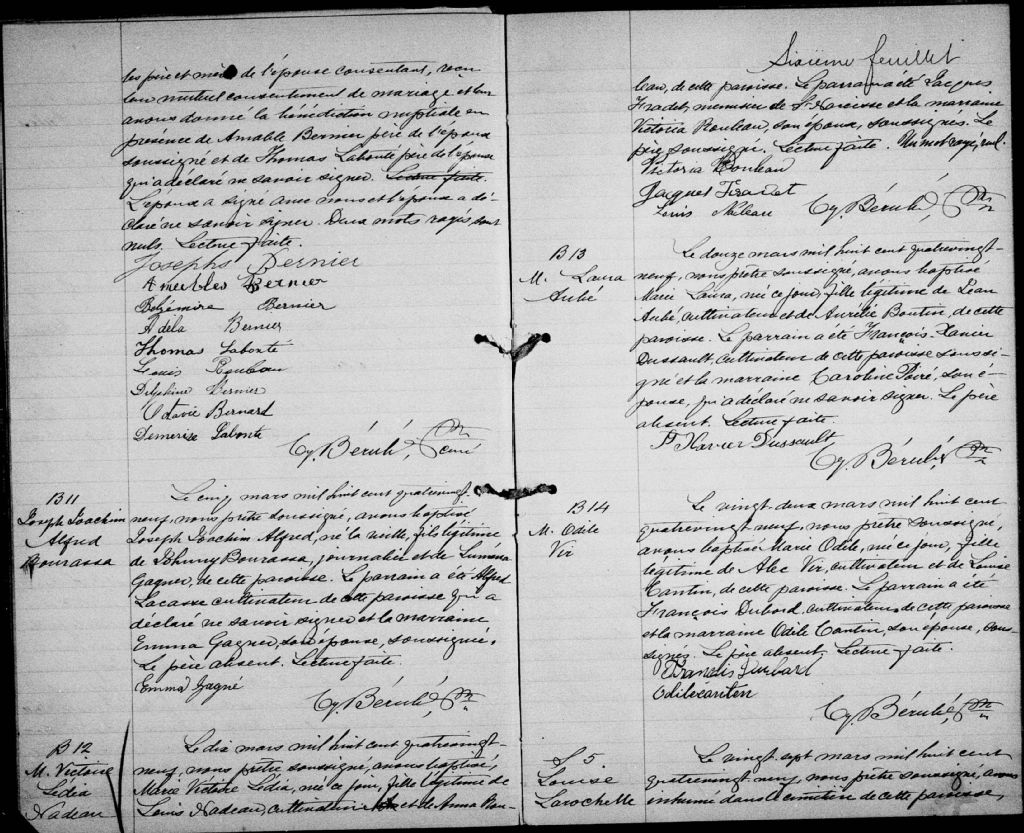 les père et mère de l'épouse consentant, reçu
leur mutuel consentement de mariage et leur
avons donné la bénédiction nuptiale en
présence de Amable Bernier père de l'époux
soussigné et de Thomas Labonté père de l'épouse
qui a déclaré ne savoir signer. Lecture faite.
L'époux a signé avec nous et l'épouse a dé-
claré ne savoir signer. Deux mots rayés, sont
nuls. Lecture faite.
Josephs Bernier
Amables Bernier
Bernier
Adéla Bernier
Thomas Labonté
Louis
Delphine Bernier
Octavie Bernard
Demerise Labonte
Cy. Bérubé, Ptr
curé
B 11
Joseph Joachim
Alfred
Bourassa
Le cinq mars mil huit cent quatrevingt-
neuf, nous prêtre soussigné, avons baptisé
Joseph Joachim Alfred, né la veille, fils légitime
de Johnny Bourassa, journalier et de Lumina
Gagner, de cette paroisse. Le parrain a été Alfred
Lacasse cultivateur de cette paroisse qui a
déclaré ne savoir signer et la marraine
Emma Gagner, son épouse, soussignée.
Le père absent. Lecture faite.
Emma Gagné
Cy. Bérubé, Ptr
B 12
M. Victoire
Lédia
Nadeau
Le dix mars mil huit cent quatrevingt-
neuf, nous prêtre soussigné, avons baptisé,
Marie Victoire Lédia, née ce jour, fille légitime de
Louis Nadeau, cultivateur et de Anna Rou-
Sixième feuillet
leau, de cette paroisse. Le parrain a été Jacques
Fradet, menuisier de St Narcisse et la marraine
Victoria Rouleau, son épouse, soussignés. Le
père soussigné. Lecture faite. Un mot rayé, nul.
Victoria Rouleau
Jacques Fradet
Louis Nadeau
Cy. Bérubé, Ptr
B 13
M. Laura
Aubé
Le douze mars mil huit cent quatrevingt-
neuf, nous prêtre soussigné, avons baptisé
Marie Laura, née ce jour, fille légitime de Jean
Aubé, cultivateur et de Aurélie Boutin, de cette
paroisse. Le parrain a été François-Xavier
Dussault, cultivateur de cette paroisse soussi-
gné et la marraine Caroline Poiré, son é-
pouse, qui a déclaré ne savoir signer. Le père
absent. Lecture faite.
F Xavier Dussault
Cy. Bérubé, Ptr
B 14
M. Odile
Vir
Le vingt deux mars mil huit cent
quatrevingt neuf, nous prêtre soussigné,
avons baptisé Marie Odile, née ce jour, fille
légitime de Alec Vir, cultivateur et de Louise
Cantin, de cette paroisse. Le parrain a été
François Dubord, cultivateur de cette paroisse
et la marraine Odile Cantin, son épouse, sous-
signés. Le père absent. Lecture faite.
Francois Dubord
Odile cantin
Cy. Bérubé, Ptr
S 5
Louise
Larochelle
Le vingt sept mars mil huit cent
quatrevingt neuf, nous prêtre soussigné, avons
inhumé dans le cimetière de cette paroisse,